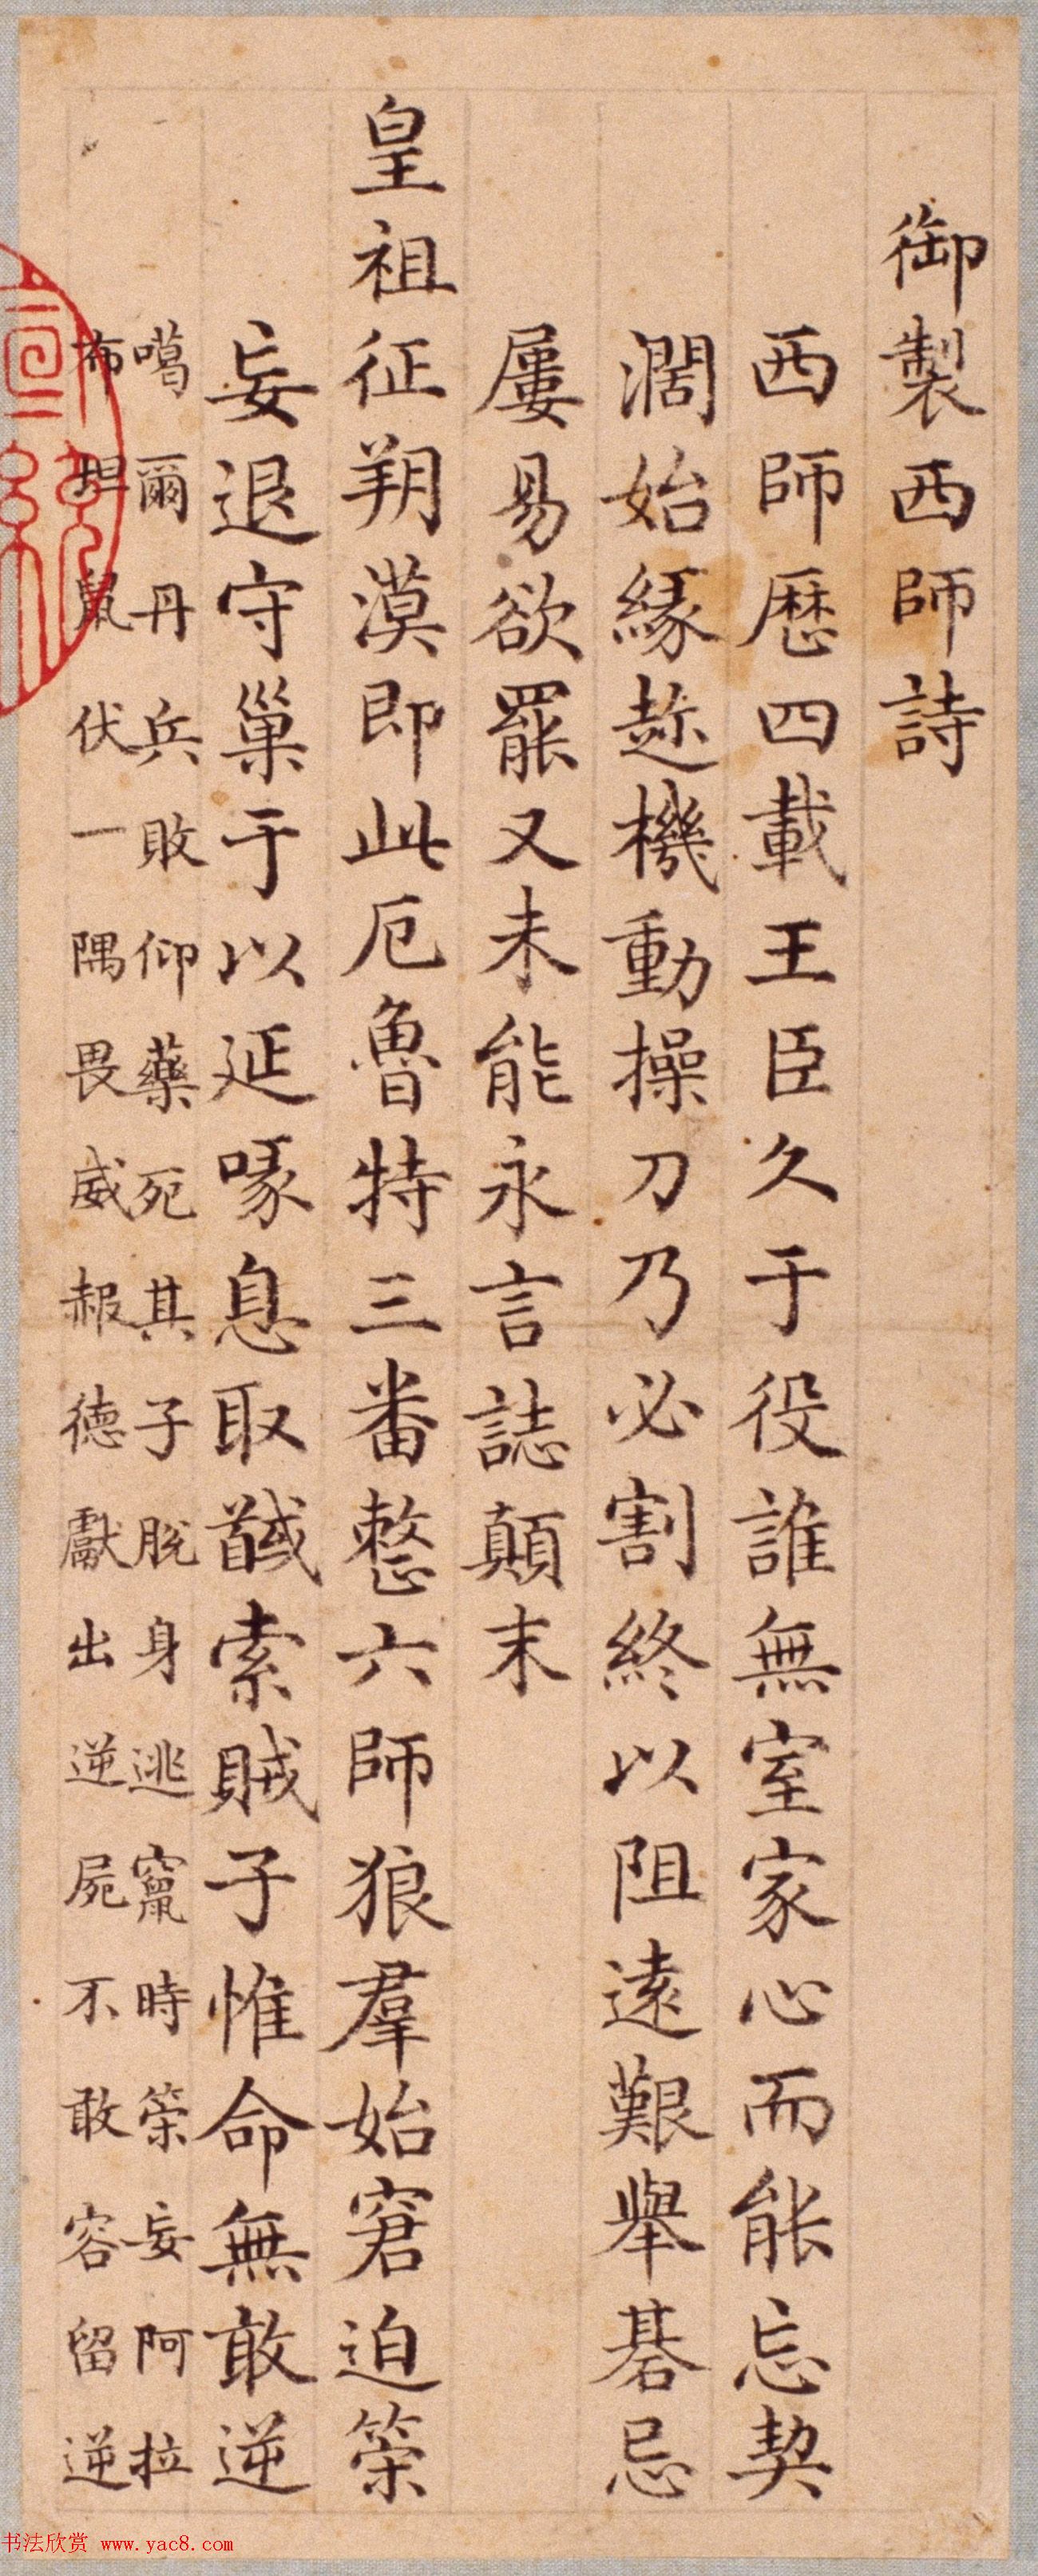 御製西師詩
西師歷四載王臣久于役誰無室家心而能忘契
濶始緣趂機動操刀乃必割終以阻遠艱舉碁忌
屢易欲罷又未能永言誌顛末
皇祖征朔漠即此厄魯特三番整六師狼羣始窘迫策
妄退守巢于以延喙息取馘索賊子惟命無敢逆
噶爾丹兵敗仰藥死其子脫身逃竄時策妄阿拉
布坦鼠伏一隅畏威赧德獻出逆屍不敢容留逆
书法欣赏 www.yac8.com